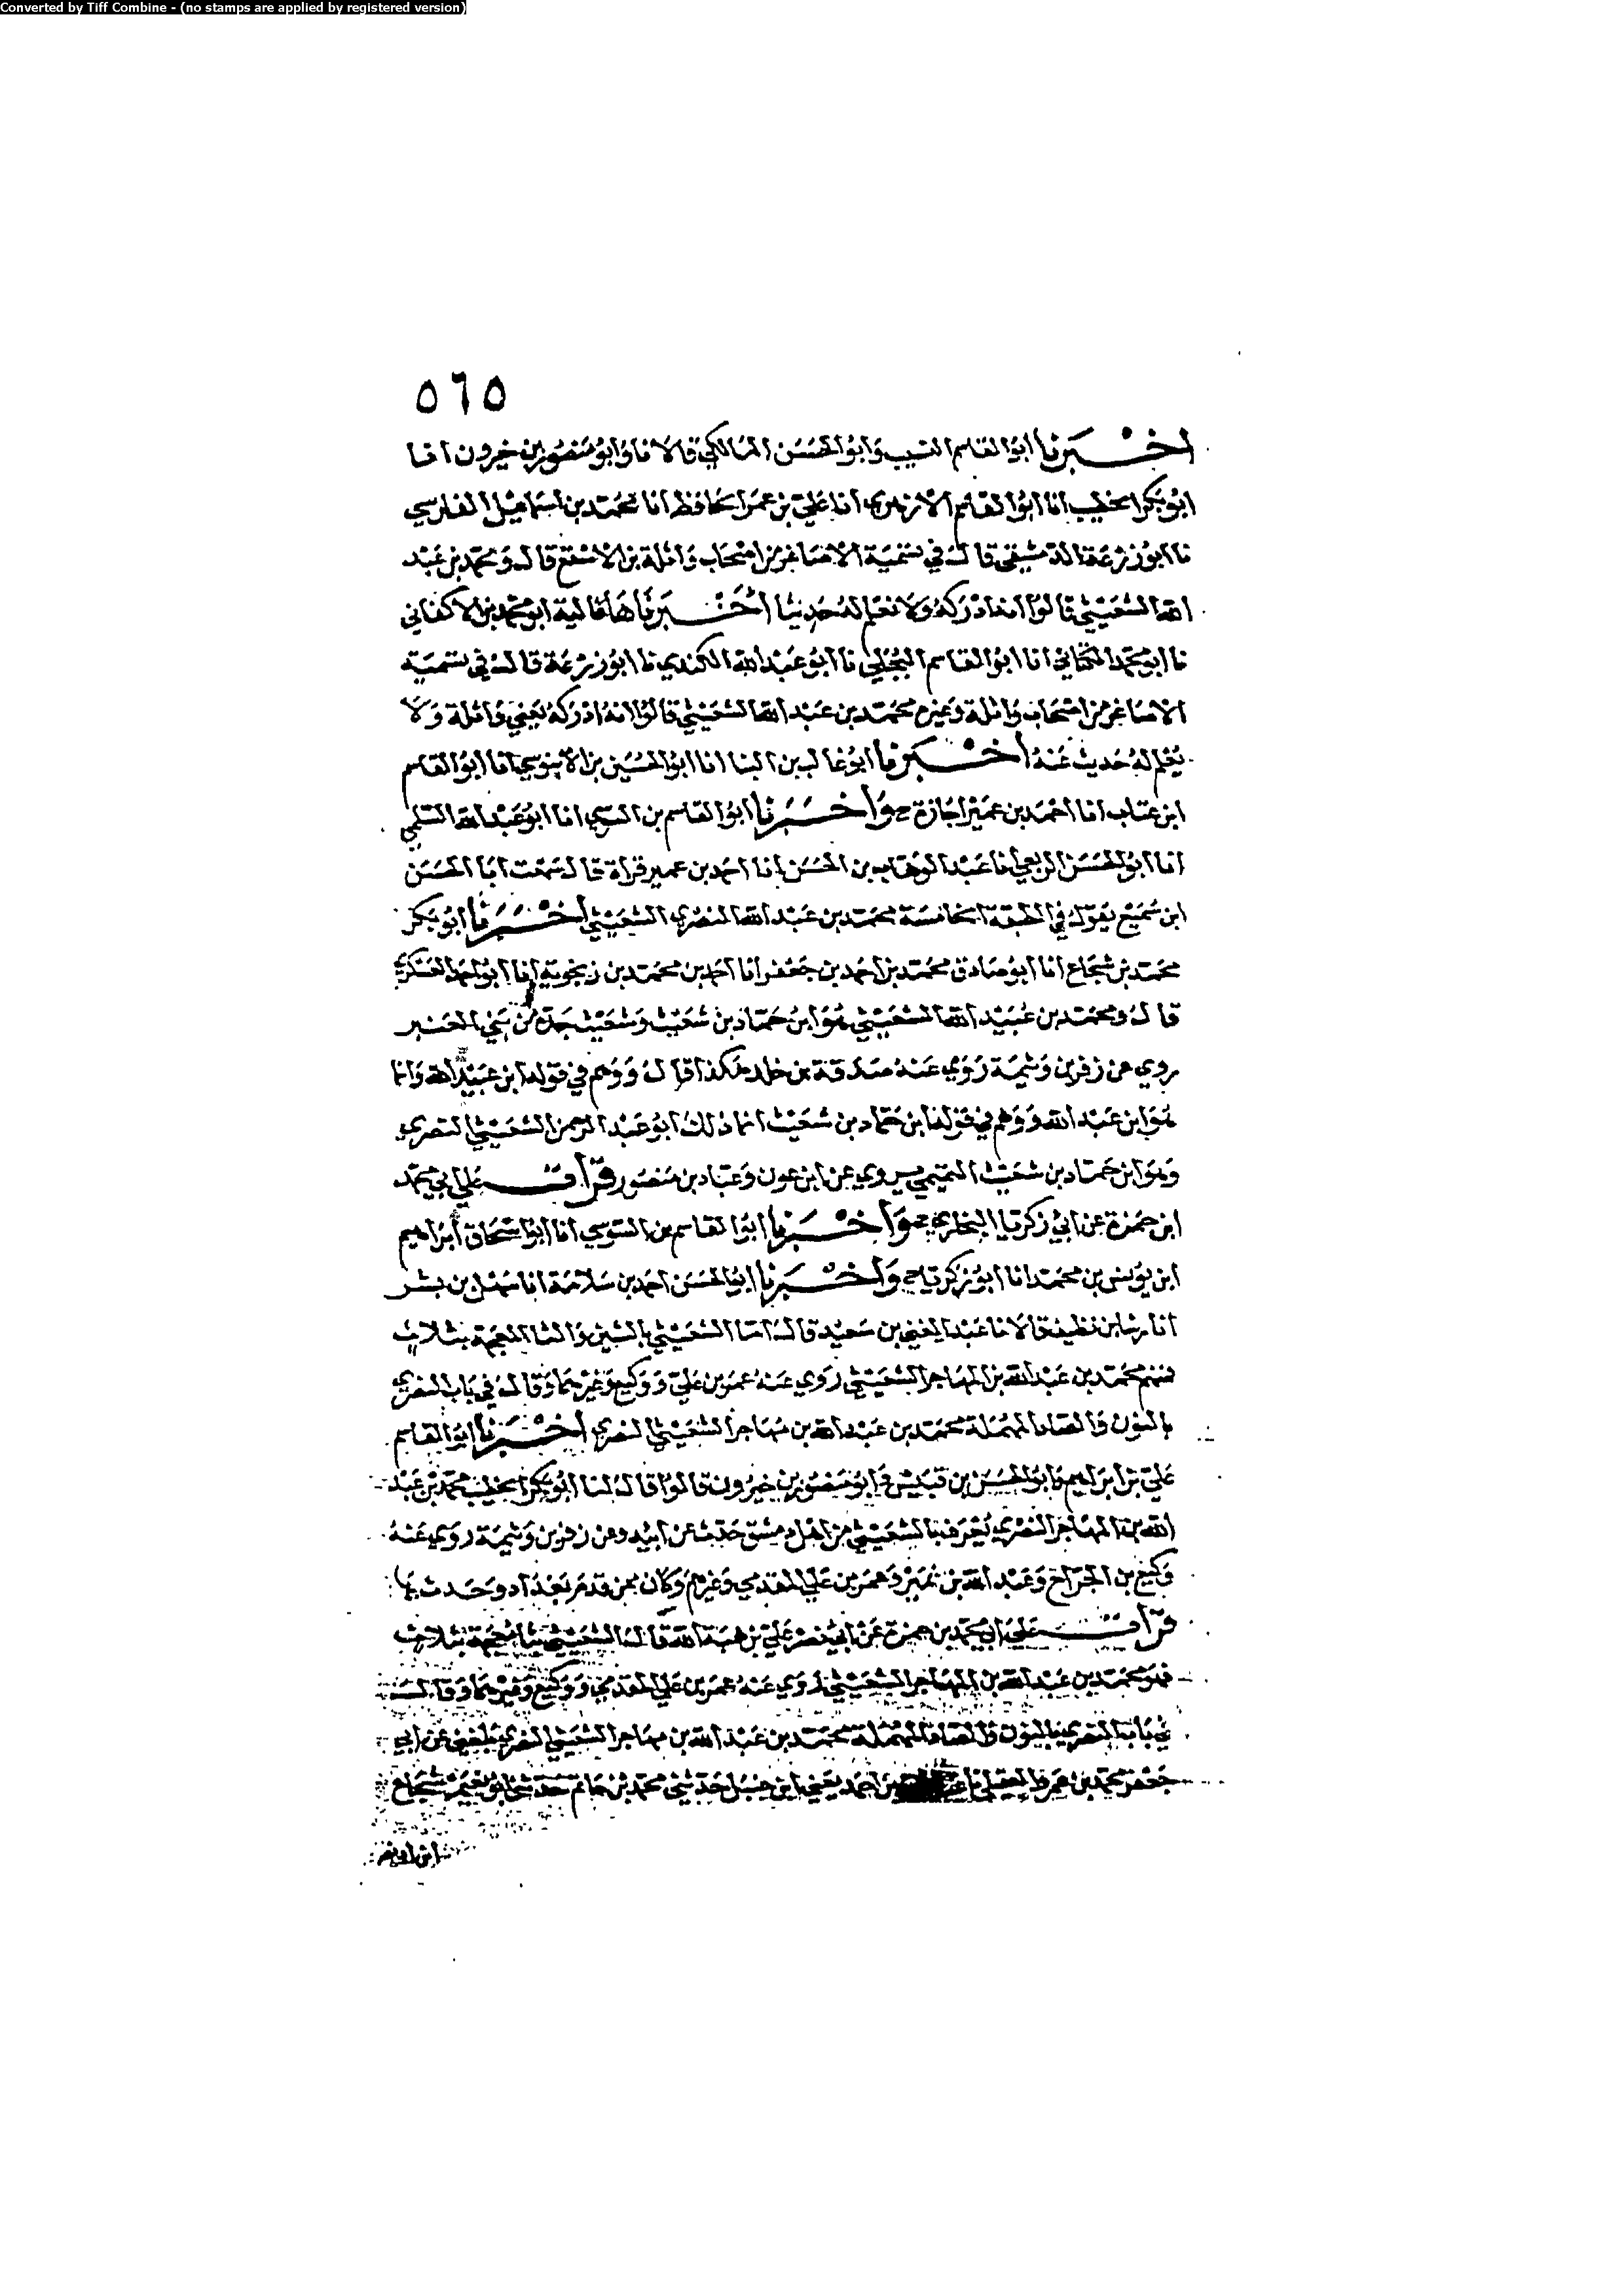 Converted by Tiff Combine - (no stamps are applied by registered version)
٥٦٥
اخبرنا ابوا القاسم النسيب وابو الحسن المالكي قالا نا وابو منصور بن خيرون انا
ابو بكر الخطيب انا ابوا القاسم الازهري انا علي بن عمر الحافظ انا محمد بن اسماعيل الفارسي
نا ابو زرعة الدمشقي قال في تسمية الاصاغر من اصحاب واثلة بن الاسقع قال ومحمد بن عبد
الله الشعيثي قالوا انه ادركه ولا نعلم له حديثا اخبرنا هاعاليه ابو محمد بن الاكفاني
نا ابو محمد الكتاني انا ابوا القاسم البجلي نا ابو عبد الله الكندي نا ابو زرعة قال في تسمية
الاصاغر من اصحاب واثلة وغيرهم محمد بن عبد الله الشعيثي قالوا انه ادركه يعني واثلة ولا
يعلم له حديث عنه اخبرنا ابو غالب بن البنا انا ابو الحسين بن الابنوسي انا ابو القاسم
ابن عتاب انا احمد بن عمير اجازة ح واخبرنا ابوا القاسم بن السوسي انا ابو عبد الله السلمي
انا ابو الحسن الربعي انا عبد الوهاب بن الحسن انا احمد بن عمير قراة قال سمعت ابا الحسن
ابن سميع يقول في الطبقة الخامسة محمد بن عبد الله النصري الشعيثي اخبرنا ابو بكر
محمد بن شجاع انا ابو صادق محمد بن احمد بن جعفر انا احمد بن محمد بن زنجويه انا ابو احمد العسكري
قال ومحمد بن عبيد الله الشعيثي هو ابن حماد بن شعيث وشعيث جده من بني العنبر
يروي عن زفر بن وثيمة روى عنه صدقة بن خلد هكذا قال ووهم في قوله ابن عبيد الله وانما
هو ابن عبد الله ووهم في قوله ابن حماد بن شعيث انما ذلك ابو عبد الرحمن الشعيثي البصري
وهو ابن حماد بن شعيث التميمي يروي عن ابن عون وعباد بن منصور قرات علي ابي محمد
ابن حمزة عن ابي زكريا البخاري ح واخبرنا ابوا القاسم بن السوسي انا ابوا اسحاق ابراهيم
ابن يونس بن محمد انا ابو زكريا ح واخبرنا ابوا الحسن احمد بن سلامة انا سهل بن بشر
انا رشا بن نظيف قالا نا عبد الغني بن سعيد قال اما الشعيثي بالشين والثا المعجمة بثلاث
فمنهم محمد بن عبد الله بن المهاجر الشعيثي روى عنه عمر بن علي ووكيع وغيرهما وقال في باب النصري
بالنون والصاد المهملة محمد بن عبد الله بن مهاجر الشعيثي النصري اخبرنا ابوا القاسم
علي بن ابراهيم وابو الحسن بن قبيس وابو منصور بن خيرون قالوا قال لنا ابو بكر الخطيب محمد بن عبد
الله بن المهاجر النصري يعرف بالشعيثي من اهل دمشق حدث عن ابيه وعن زفر بن وثيمة روى عنه
وكيع بن الجراح وعبد الله بن نمير وعمر بن علي المقدمي وغيرهم وكان ممن قدم بغداد وحدث بها
قرات علي ابي محمد بن حمزة عن ابي نصر علي بن هبة الله قال اما الشعيثي بثا معجمة بثلاث
فهو محمد بن عبد الله بن المهاجر الشعيثي روى عنه عمر بن علي المقدمي ووكيع وغيرهما وقال
في باب النصري بالنون والصاد المهملة محمد بن عبد الله بن مهاجر الشعيثي النصري بلغني عن ابي
جعفر محمد بن عمرو العقيلي نا بن احمد يعني ابن حنبل حدثني محمد بن حاتم حدثني ابو نعيم شجاع